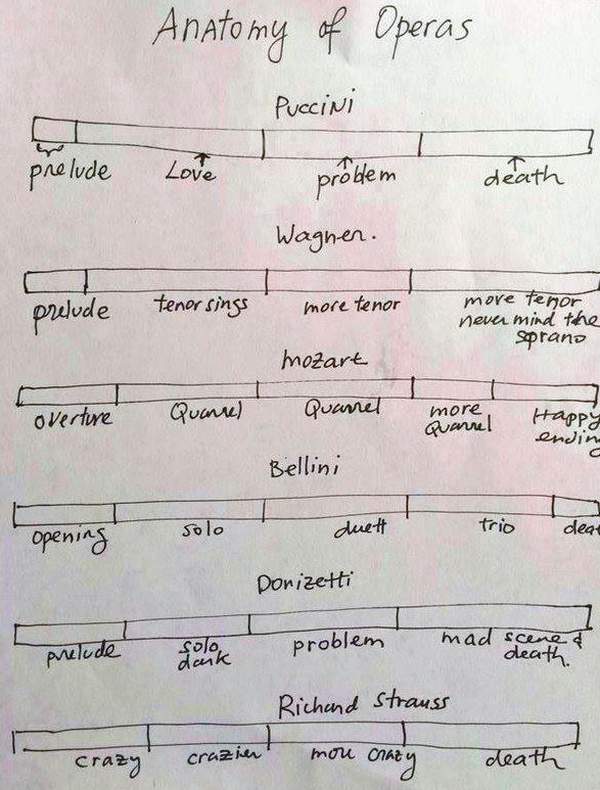 Anatomy of Operas
Puccini
prelude Love problem death
Wagner.
prelude tenor sings more tenor more tenor
never mind the
soprano
mozart
overture Quarrel Quarrel more Happy
Quarrel ending
Bellini
opening solo duett trio deat
Donizetti
prelude solo problem mad scene &
dark death.
Richard Strauss
crazy crazier more crazy death